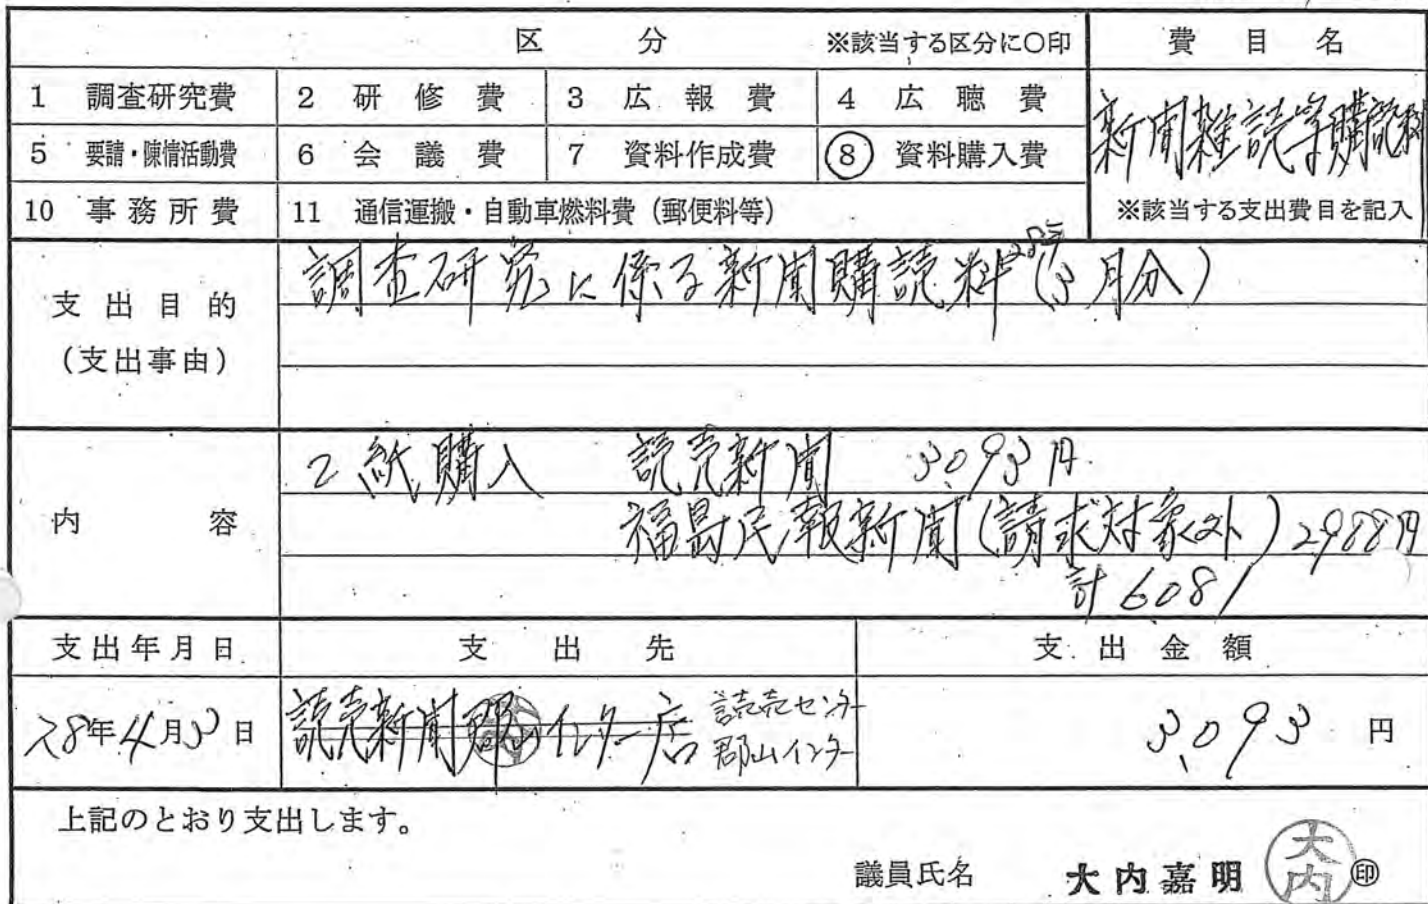 区 分 ※該当する区分に○印 費 目 名
1 調査研究費 2 研修費 3 広報費 4 広聴費
新聞雑誌等購読料
5 要請・陳情活動費 6 会議費 7 資料作成費 ⑧ 資料購入費
10 事務所費 11 通信運搬・自動車燃料費（郵便料等） ※該当する支出費目を記入
支出目的
(支出事由)
調査研究に係る新聞購読料(3月分)
内 容
2紙購入 読売新聞 3,093円
福島民報新聞(請求対象外) 2988円
計6081
支出年月日 支出先 支出金額
28年4月3日 読売新聞郡山インター店 読売センター 3,093円
郡山インター
上記のとおり支出します。
議員氏名 大内嘉明 大内 ㊞